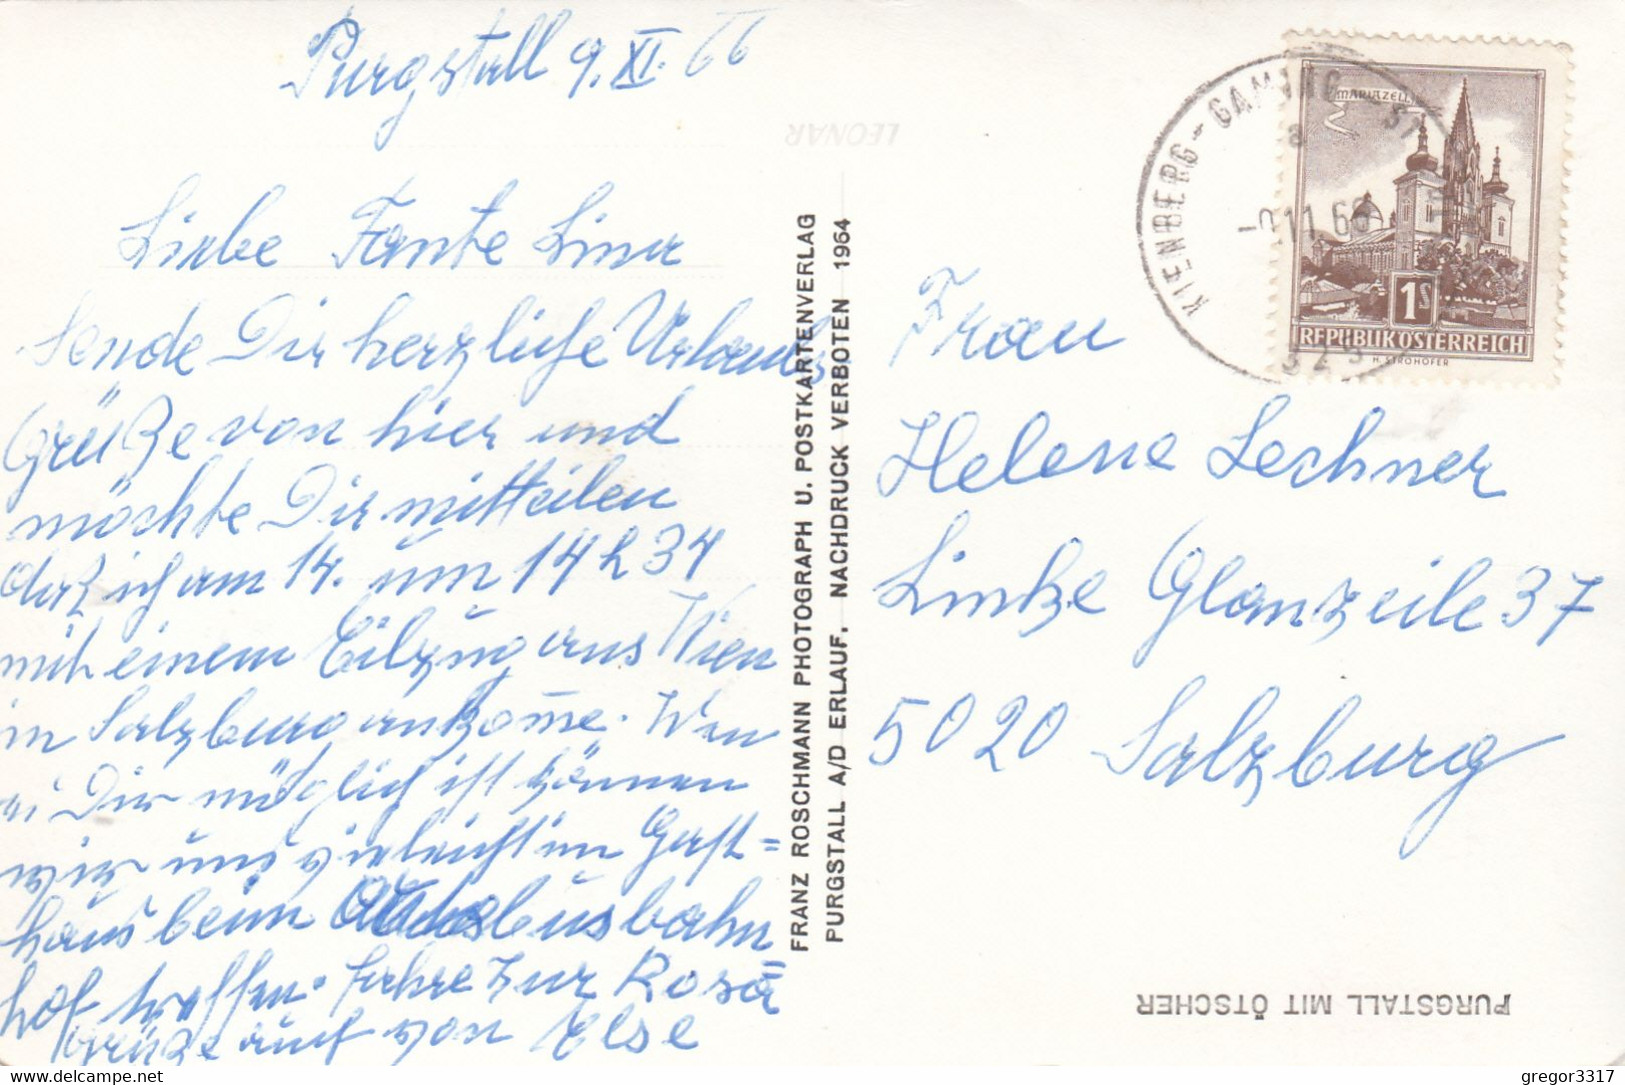 Purgstall 9. XI. 66
LEONAR
Liebe Tante Lina
Sende Dir herzliche Urlaubs
Grüße von hier und
möchte Dir mitteilen
daß ich am 14. um 14 h 34
mit einem Eilzug aus Wien
in Salzburg ankom̅e. Wen
es Dir möglich ist können
wir uns vieleicht im Gast=
haus beim Autobusbahn
hof treffen. Fahre zur Rosa
Grüße auch von Else
FRANZ ROSCHMANN PHOTOGRAPH U. POSTKARTENVERLAG
PURGSTALL A/D ERLAUF. NACHDRUCK VERBOTEN 1964
KIENBERG-GAMING
11.66
MARIAZELL
1S
REPUBLIK OSTERREICH
H. STROHOFER
Frau
Helene Lechner
Linke Glanzeile 37
5020 Salzburg
PURGSTALL MIT ÖTSCHER
delcampe.net
gregor3317